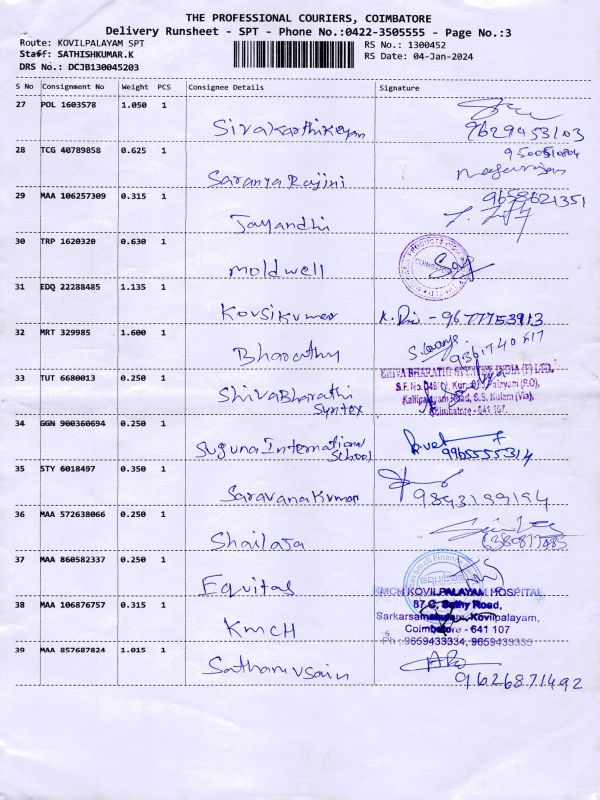 THE PROFESSIONAL COURIERS, COIMBATORE
Delivery Runsheet - SPT - Phone No.:0422-3505555 - Page No.:3
Route: KOVILPALAYAM SPT
RS No.: 1300452
Staff: SATHISHKUMAR.K
RS Date: 04-Jan-2024
DRS No.: DCJB130045203
S No Consignment No Weight PCS Consignee Details Signature
27 POL 1603578 1.050 1
Sivakarthikeyan 9629453103
28 TCG 40789858 0.625 1
Saranya Rajini
29 MAA 106257309 0.315 1 9658621351
Jayandhi
30 TRP 1620320 0.630 1
Moldwell
31 EDQ 22288485 1.135 1
Kovsikumar - 9677753913
32 MRT 329985 1.600 1
Bharathy
33 TUT 6680013 0.250 1
ShivaBharathi
Syntex
Coimbatore - 641 107.
34 GGN 900360694 0.250 1
Suguna International
School
9965555314
35 STY 6018497 0.350 1
Saravanakumar 9893199194
36 MAA 572638066 0.250 1
Shailaja
37 MAA 860582337 0.250 1
Equitas
KMCH KOVILPALAYAM HOSPITAL
38 MAA 106876757 0.315 1
87 C, Sathy Road,
Sarkarsamakulam, Kovilpalayam,
KMCH
Coimbatore - 641 107
Ph : 9659433334, 9659433335
39 MAA 857687824 1.015 1
Sathamvsain
9626871492